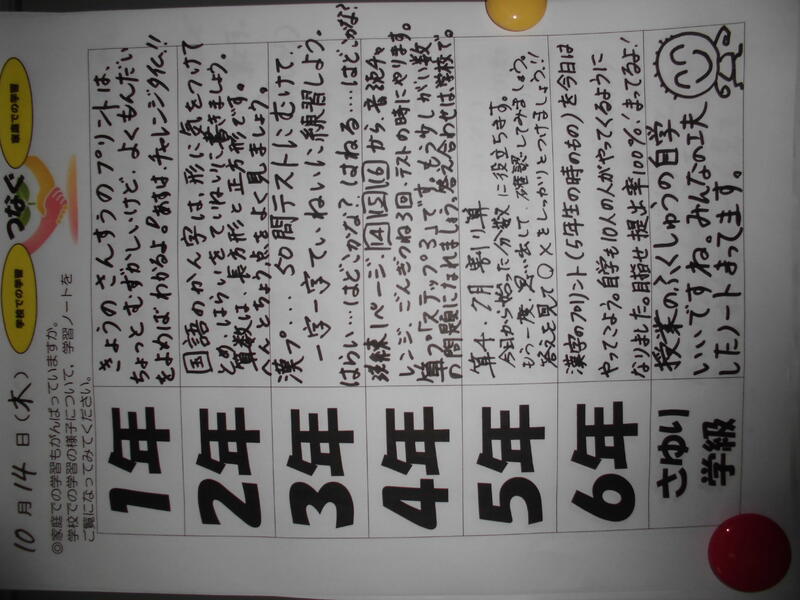 10月14日(木)
学校での学習
つなぐ
家庭での学習
◎家庭での学習もがんばっていますか。
学校での学習の様子について、学習ノートを
ご覧になってみてください。
1年
きょうのさんすうのプリントは、
ちょっとむずかしいけど、よくもんだい
をよめばわかるよ!あすはチャレンジタイム!!
2年
国語のかん字は、形に気をつけて
とめ、はらいをていねいに書きましょう。
算数は、長方形と正方形です。
へんとちょう点をよく見ましょう。
3年
漢プ…50問テストにむけて、
一字一字ていねいに練習しよう。
はらい…はどこかな?はねる…はどこかな?
4年
漢練1ページ・④⑤⑥から音読チャ
レンジ・ごんぎつね3回・テストの時にやります。
算プ「ステップ3」です。もう少しがい数
の問題になれましょう。答え合わせは学校で。
5年
算チ・ク月 割り算
今日から始った分数に役立ちます。
もう一度、思い出して、確認してみましょう。
答えを見て○×をしっかりとつけましょう!!
6年
漢字のプリント(5年生の時のもの)を今日は
やってこよう。自学も10人の人がやってくるように
なりました。目指せ提出率100%!まってるよ!
さゆり
学級
授業のふくしゅうの自学
いいですね。みんなの工夫
したノートまってます。